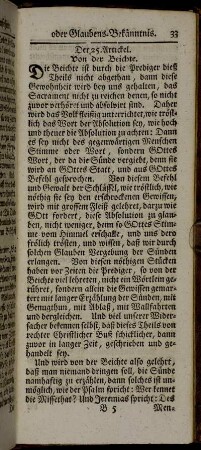 oder Glaubens-Bekäntnis. 33
Der 25. Artickel.
Von der Beichte.
Die Beichte ist durch die Prediger dieß
Theils nicht abgethan, dann diese
Gewohnheit wird bey uns gehalten, das
Sacrament nicht zu reichen denen, so nicht
zuvor verhöret und absolvirt sind. Daher
wird das Volk fleißig unterrichtet, wie tröstlich
das Wort der Absolution sey, wie hoch
und theuer die Absolution zu achten: Dann
es sey nicht des gegenwärtigen Menschen
Stimme oder Wort, sondern GOttes
Wort, der da die Sünde vergiebt, denn sie
wird an GOttes Statt, und aus GOttes
Befehl gesprochen. Von diesem Befehl
und Gewalt der Schlüssel, wie tröstlich, wie
nöthig sie sey den erschrockenen Gewissen,
wird mit grossem Fleiß gelehret, darzu wie
GOtt fordert, diese Absolution zu glauben,
nicht weniger, denn so GOttes Stimme
vom Himmel erschallt, und uns dero
frölich trösten, und wissen, daß wir durch
solchen Glauben Vergebung der Sünden
erlangen. Von diesen nöthigen Stücken
haben vor Zeiten die Prediger, so von der
Beichte viel lehreten, nicht ein Wörtlein gerühret,
sondern allein die Gewissen gemartert
mit langer Erzählung der Sünden, mit
Genugthun, mit Ablaß, mit Wallfahrten
und dergleichen. Und viel unserer Widersacher
bekennen selbst, daß dieses Theils von
rechter Christlicher Buß schicklicher, dann
zuvor in langer Zeit, geschrieben und gehandelt
sey.
Und wird von der Beichte also gelehret,
daß man niemand dringen soll, die Sünde
namhaftig zu erzählen, dann solches ist unmöglich,
wie der Psalm spricht: Wer kennet
die Missethat? Und Jeremias spricht: Des
B 5 Men-